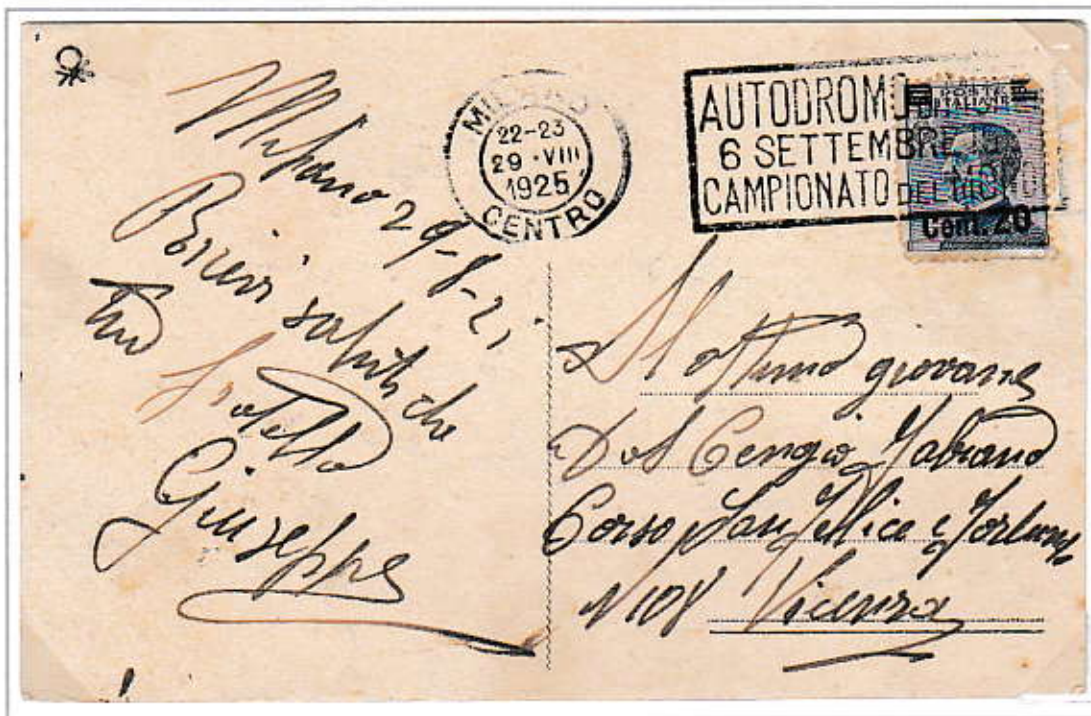 Milano 29-8-25
Brevi saluti che
tuo fratello
Giuseppe
MILANO
22-23
29 · VIII
1925
CENTRO
AUTODROMO
6 SETTEMBRE
CAMPIONATO DEL
POSTE
ITALIANE
Cent. 20
Al ottimo giovane
Dal Cengio Fabiano
Corso San Felice e Fortunato
N 108 Vicenza